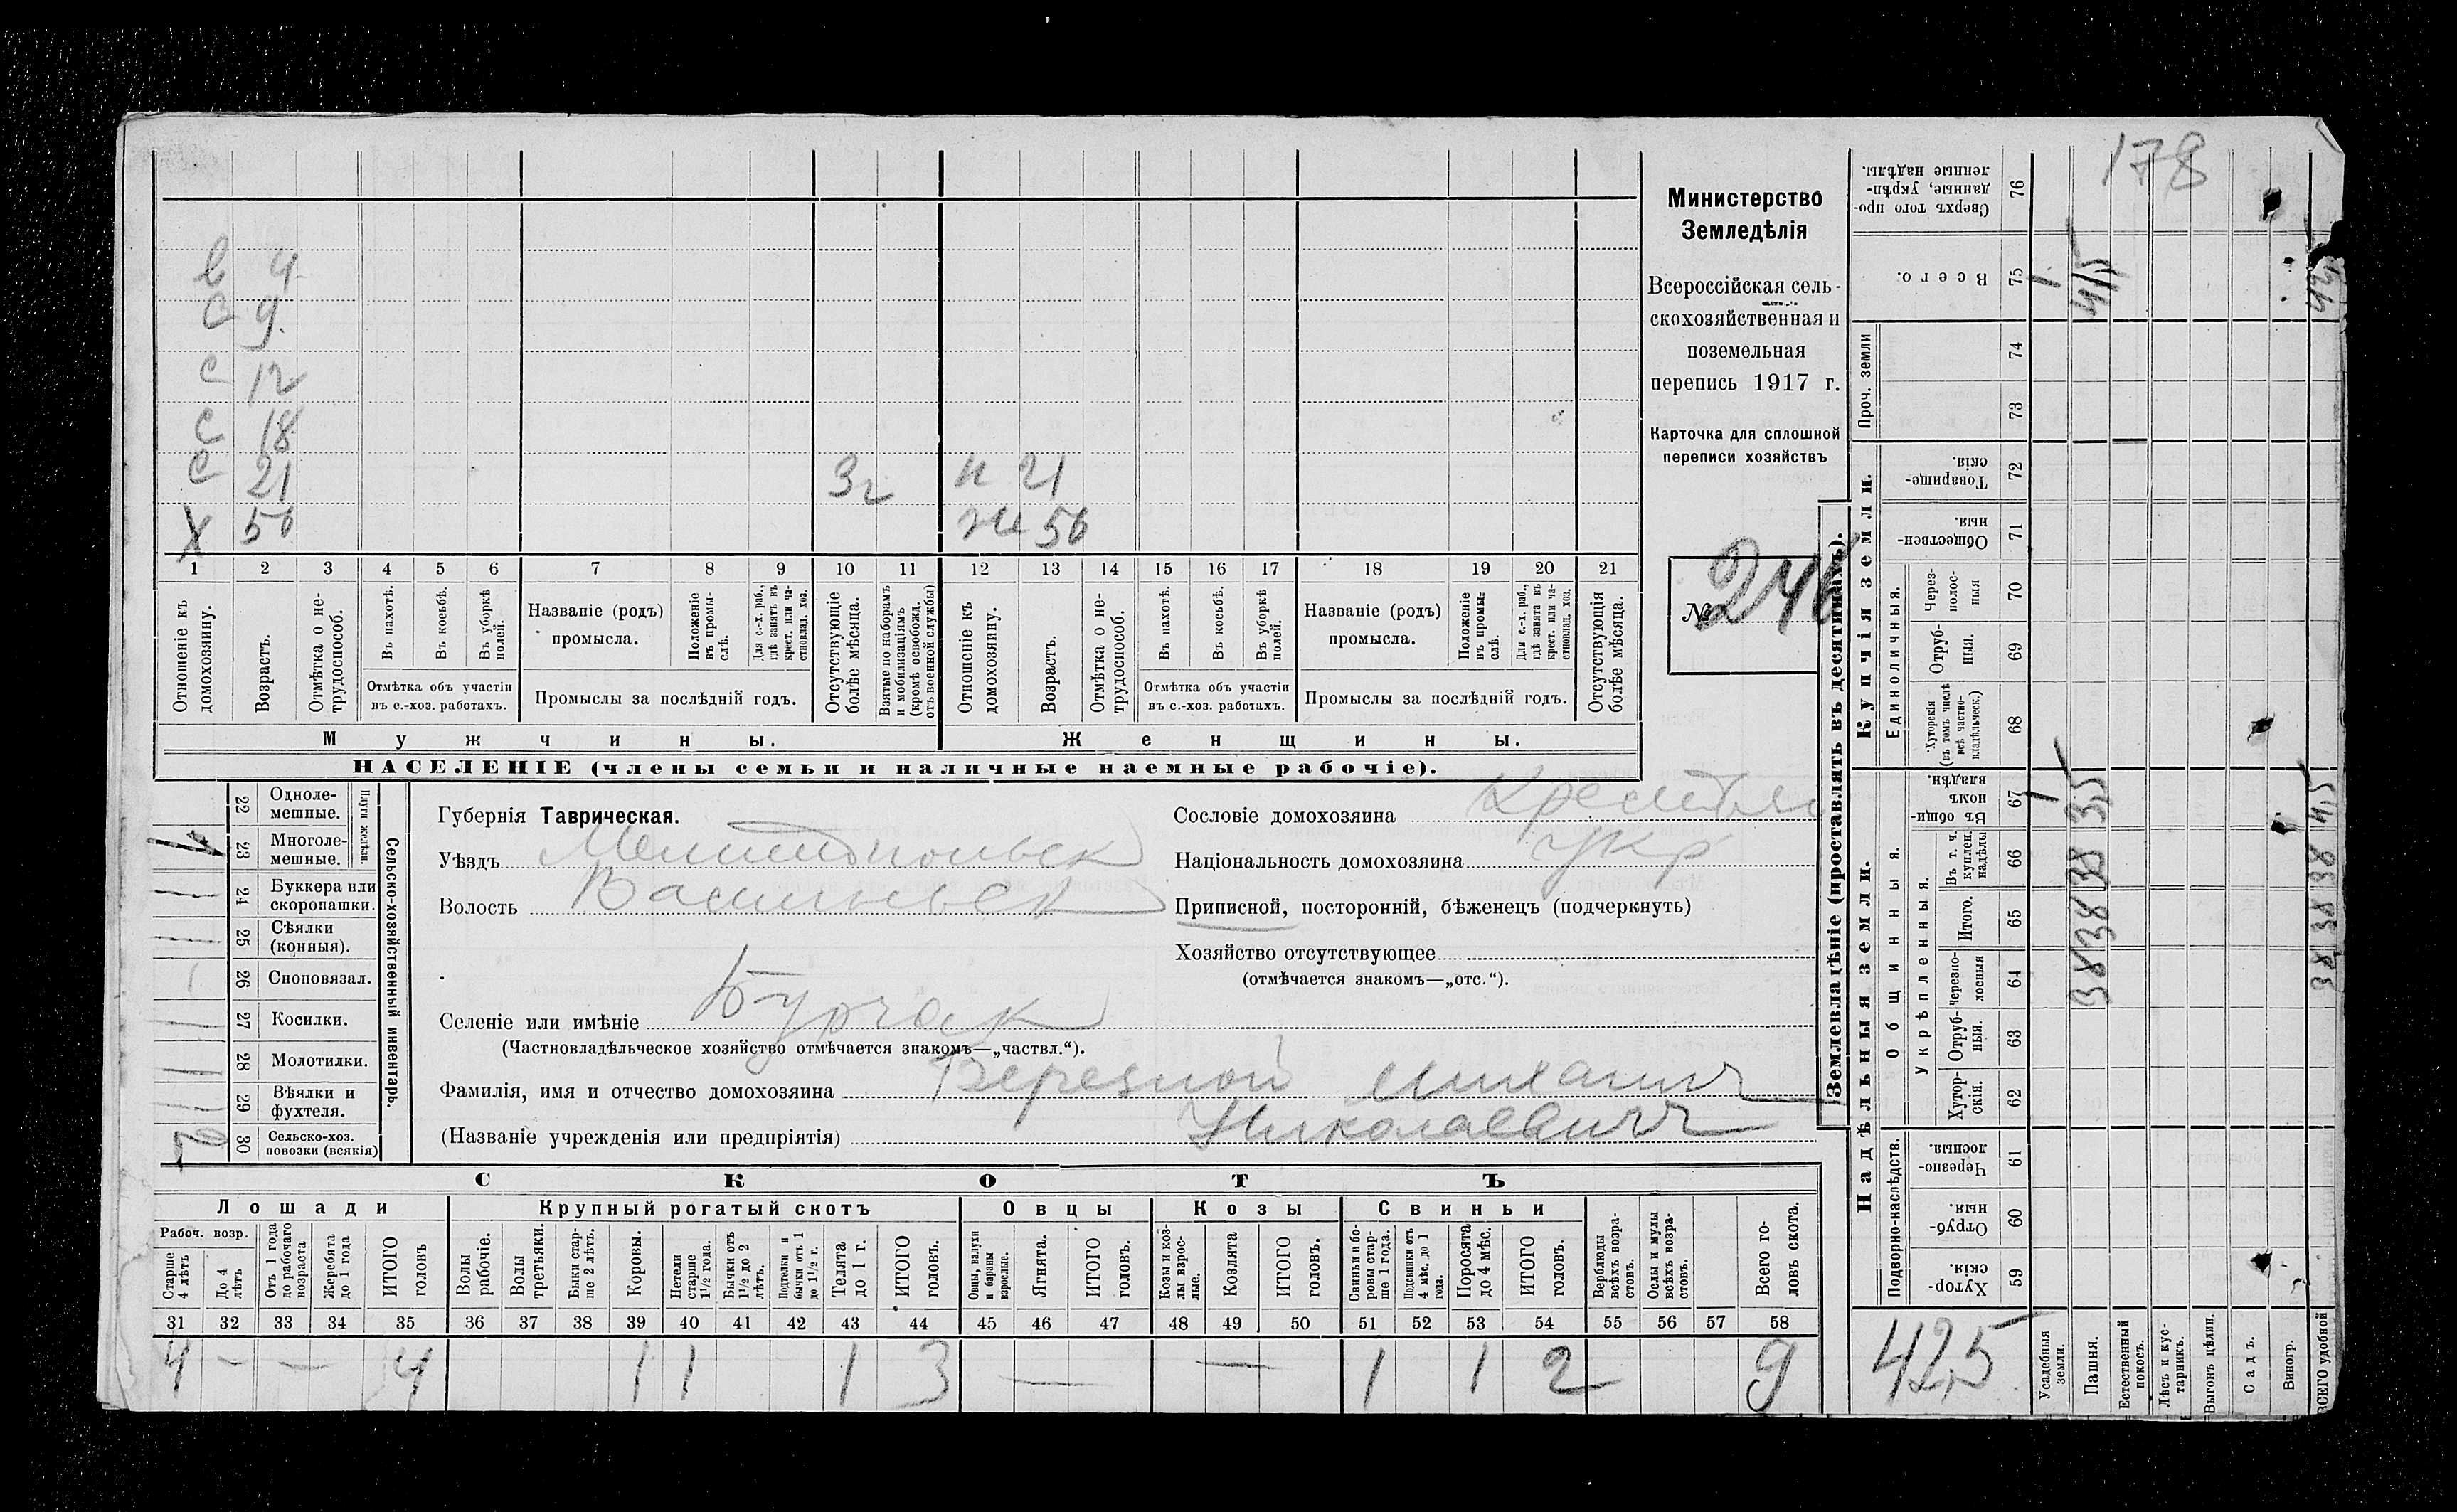 178
Министерство
Земледѣлія
Всероссійская сель-
скохозяйственная и
поземельная
перепись 1917 г.
Карточка для сплошной
переписи хозяйствъ
№ 246
в 4
С 9
с 12
с 18
с 21 3 г н 21
Х 50 ж 50
1 2 3 4 5 6 7 8 9 10 11 12 13 14 15 16 17 18 19 20 21
Отношеніе къ домохозяину.
Возрастъ.
Отмѣтка о не-трудоспособ.
Въ пахотѣ.
Въ косьбѣ.
Въ уборкѣ полей.
Отмѣтка объ участіи
въ с.-хоз. работахъ.
Названіе (родъ)
промысла.
Положеніе въ промы-слѣ.
Для с.-х. раб., гдѣ занятъ въ крест. или ча-стновлад. хоз.
Промыслы за послѣдній годъ.
Отсутствующіе болѣе мѣсяца.
Взятые по наборамъ и мобилизаціямъ (кромѣ освобожд. отъ военной службы)
Отношеніе къ домохозяину.
Возрастъ.
Отмѣтка о не-трудоспособ.
Въ пахотѣ.
Въ косьбѣ.
Въ уборкѣ полей.
Отмѣтка объ участіи
въ с.-хоз. работахъ.
Названіе (родъ)
промысла.
Положеніе въ промы-слѣ.
Для с.-х. раб., гдѣ занята въ крест. или ча-стновлад. хоз.
Промыслы за послѣдній годъ.
Отсутствующія болѣе мѣсяца.
Мужчины. Женщины.
НАСЕЛЕНІЕ (члены семьи и наличные наемные рабочіе).
Сельско-хозяйственный инвентарь.
Плуги желѣзн.
22 Одноле-мешные.
1 23 Многоле-мешные.
24 Буккера или скоропашки.
25 Сѣялки (конныя).
26 Сноповязал.
27 Косилки.
28 Молотилки.
29 Вѣялки и фухтеля.
2 30 Сельско-хоз. повозки (всякія)
Губернія Таврическая.
Уѣздъ Мелитопольск
Волость Васильевск
Селеніе или имѣніе Бурчак
(Частновладѣльческое хозяйство отмѣчается знакомъ—„частвл.“).
Фамилія, имя и отчество домохозяина Березной Михаил
(Названіе учрежденія или предпріятія) Николаевич
Сословіе домохозяина Крестьян
Національность домохозяина Укр
Приписной, посторонній, бѣженецъ (подчеркнуть)
Хозяйство отсутствующее
(отмѣчается знакомъ—„отс.“).
СКОТЪ
Лошади Крупный рогатый скотъ Овцы Козы Свиньи
Рабоч. возр.
Старше 4 лѣтъ
До 4 лѣтъ
Отъ 1 года до рабочаго возраста
Жеребята до 1 года
ИТОГО головъ
Волы рабочіе.
Волы третьяки.
Быки стар-ше 2 лѣтъ.
Коровы.
Нетели старше 1½ года.
Бычки отъ 1½ до 2 лѣтъ.
Подтелки и бычки отъ 1 до 1½ г.
Телята до 1 г.
ИТОГО головъ.
Овцы, валухи и бараны взрослые.
Ягнята.
ИТОГО головъ.
Козы и коз-лы взрос-лые.
Козлята
ИТОГО головъ.
Свиньи и бо-ровы стар-ше 1 года.
Подсвинки отъ 4 мѣс. до 1 года.
Поросята до 4 мѣс.
ИТОГО головъ.
Верблюды всѣхъ возра-стовъ.
Ослы и мулы всѣхъ возра-стовъ.
Всего го-ловъ скота.
31 32 33 34 35 36 37 38 39 40 41 42 43 44 45 46 47 48 49 50 51 52 53 54 55 56 57 58
4 — — 4 1 1 1 3 — — 1 1 2 9
Землевладѣніе (проставлять въ десятинахъ).
Надѣльныя земли. Купчія земли.
Проч. земли
Подворно-наслѣдств.
Общинныя.
Укрѣпленныя.
Единоличныя.
59 Хутор-скія.
60 Отруб-ныя.
61 Черезпо-лосныя
62 Хутор-скія.
63 Отруб-ныя.
64 Черезпо-лосныя
65 Итого.
66 Въ т. ч. куплен. надѣлы
67 Въ общи-номъ владѣн.
68 Хуторскія (въ томъ числѣ всѣ частно-владѣльческ.)
69 Отруб-ныя.
70 Через-полос-ныя
71 Обществен-ныя.
72 Товарище-скія.
73
74
75 Всего.
76 Сверхъ того про-данные, укрѣп-ленные надѣлы.
42,5
Усадебныя земли. 1 1
Пашня. 38 38 38 3,5 41,5
Естественный покосъ.
Лѣсъ и кус-тарникъ.
Выгонъ цѣлин.
Садъ.
Виногр.
ВСЕГО удобной 38 38 38 4,5